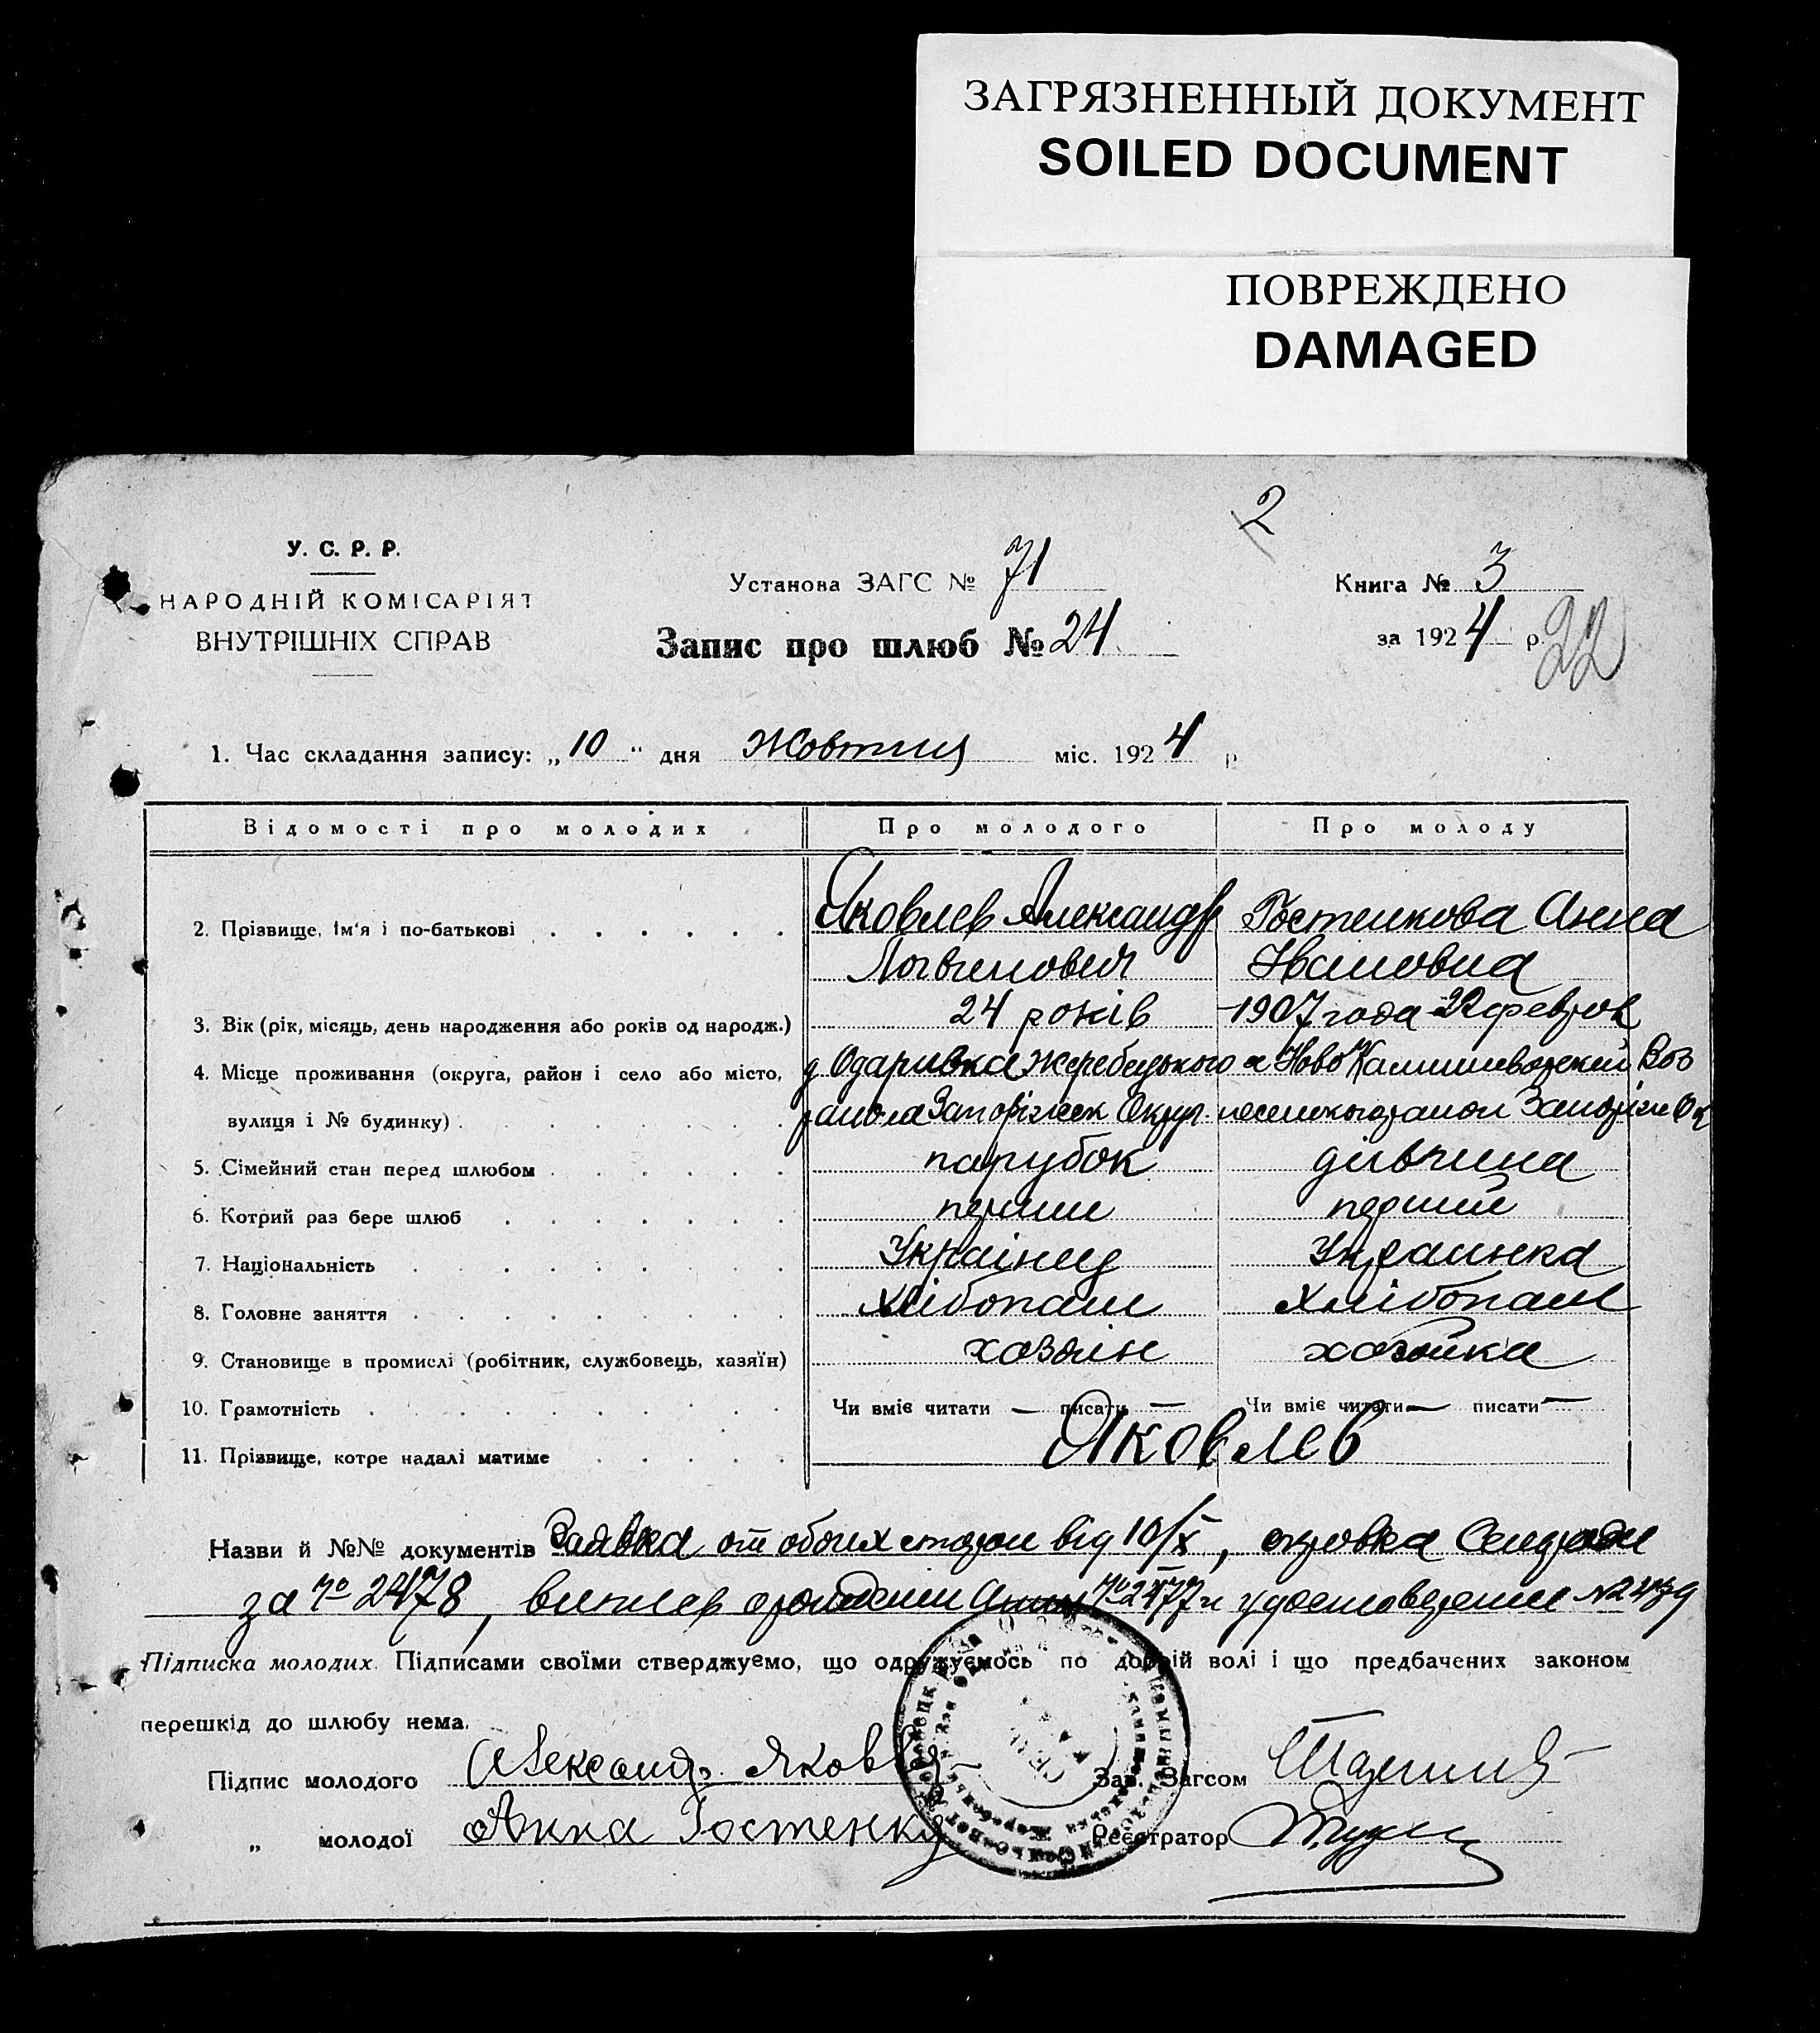 ЗАГРЯЗНЕННЫЙ ДОКУМЕНТ
SOILED DOCUMENT
ПОВРЕЖДЕНО
DAMAGED
2
У. С. Р. Р.
НАРОДНІЙ КОМІСАРІЯТ
ВНУТРІШНІХ СПРАВ
Установа ЗАГС № 71
Книга № 3
Запис про шлюб № 24
за 1924 р.
22
1. Час складання запису: „10“ дня Жовтня міс. 1924 р
Відомості про молодих Про молодого Про молоду
2. Прізвище, Ім'я і по-батькові Яковлев Александр Гостенкова Анна
Логвинович Ивановна
3. Вік (рік, місяць, день народження або років од народж.) 24 років 1907 года 22 февраля
4. Місце проживання (округа, район і село або місто, Одаривка Жеребецького Ново
вулиця і № будинку) района Запоріжск Округ.
5. Сімейний стан перед шлюбом парубок дівчина
6. Котрий раз бере шлюб перший перший
7. Національність Українец Украинка
8. Головне заняття хлібопаш хлібопаш
9. Становище в промислі (робітник, службовець, хазяїн) хозяін хозяйка
10. Грамотність Чи вміє читати — писати — Чи вміє читати — писати —
11. Прізвище, котре надалі матиме Яковлев
Назви й №№ документів Заявка от обоих сторон від 10/X,
за № 2478, № 2477 и удостоверение № 2479
Підписка молодих. Підписами своїми стверджуємо, що одружуємось по добрій волі і що предбачених законом
перешкід до шлюбу нема.
Підпис молодого Александр Яковлев
Зав. Загсом
„ молодої Анна Гостенко
Реєстратор